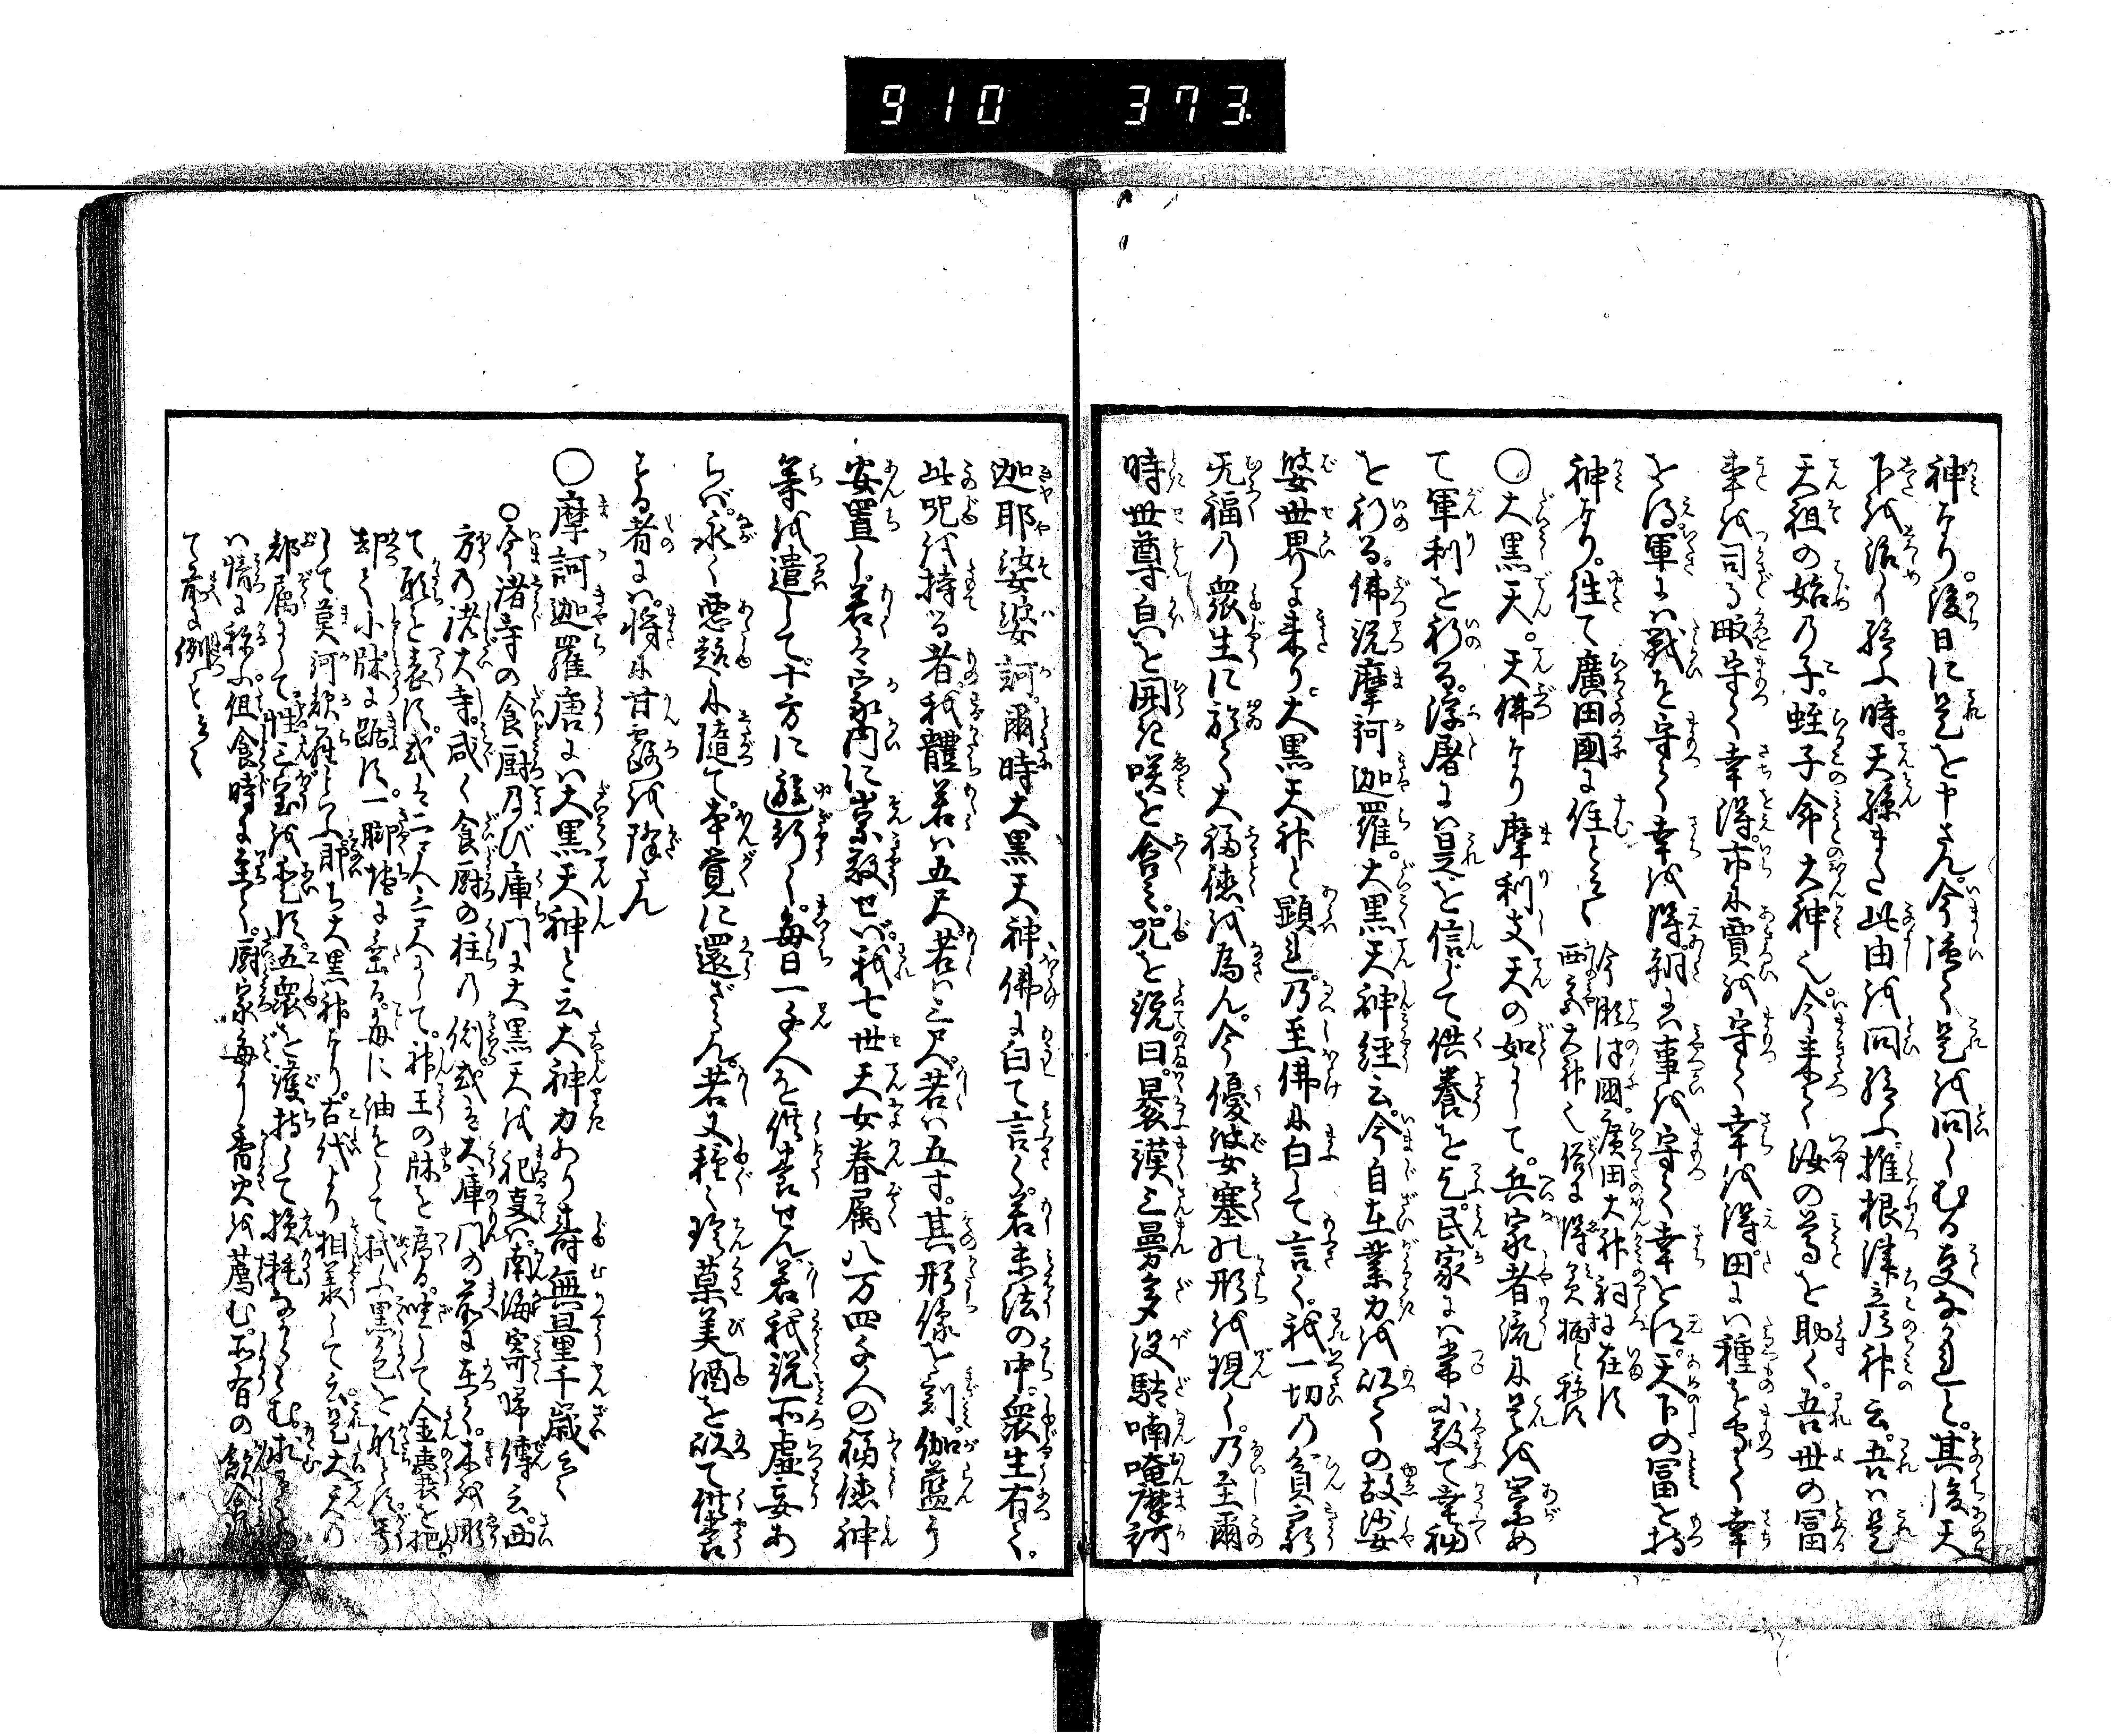 910 373.
神なり。後日に是を申さん。今強て是を問しむる事なかれと。其後天
下を治め給ふ時。天孫また此由を問給ふ。推根津彦神云。吾は是
天祖の始の子。蛭子命大神也。今来て汝の尊を助く。吾世の富
事を司る。畋守て幸得。市に賈を守て幸を得。田には種を守て幸
を得。軍には戦を守て幸を得。朝には事を守て幸とす。天下の冨を持
神なり。往て廣田國に住と云々
今津国。廣田大神祠に在す
西宮大神也
〇大黒天。天佛なり摩利支天の如して。兵家者流に是を崇め
て軍利を祈る。浮屠には是を信じて供養を乞。民家には常に敬て幸福
を祈る。佛説摩訶迦羅。大黒天神経云。今自在業力を以ての故娑
婆世界に来り大黒天神と顕れ。乃至佛に白して言く。我一切の貧窮
无福の衆生に於て大福徳を為ん。今優婆塞の形を現じ。乃至爾
時世尊白を開き咲を含み。咒を説曰。曩謨三曼多没駄喃唵摩訶
迦耶娑婆訶。爾時大黒天神佛に白て言く。若末法の中。衆生有て。
此呪を持る者。我體若は五尺。若は三尺。若は五寸。其形像を刻。伽藍に
安置し。若くは家内に崇敬せば。我七世天女眷属八万四千人の福徳神
等を遣して。十方に遊行し。毎日一千人を供養せん。若我説所虚妄あ
らば。永く悪趣に隨て。本覚に還ざらん。若又種々珍菓美酒を以て供養
する者には。将に甘露を降さん
〇摩訶迦羅唐には大黒天神と云大神力あり寿無量千歳と云々
〇今諸寺の食厨乃び庫門に大黒天を祀事は。南海寄帰傳云。西
方の諸大寺。咸く食厨の柱の側。或は大庫門の前に在て。木を彫
て形を表す。或は二尺三尺にして。神王の牀を為る。坐して金嚢を把。
却て小牀に踞す。一脚地に垂る。毎に油をして拭ふ黒色を形とす。号
して莫訶歌羅と云ふ。即ち大黒神なり。古代より相承して云。是大天の
部属にして性三宝を愛す。五衆を護持して損耗なからしむ。求る者
は情に称ふ。但食時に至て。厨家毎に香火を薦む。所有の飲食
て前に例と云々